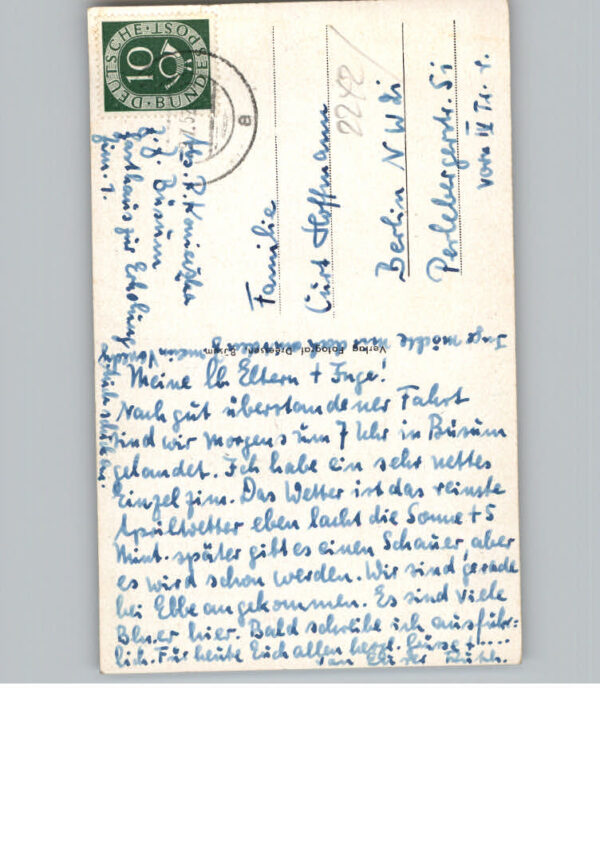 Meine lb Eltern + Inge!
Nach gut überstandener Fahrt
sind wir morgens um 7 Uhr in Büsum
gelandet. Ich habe ein sehr nettes
Einzelzim. Das Wetter ist das reinste
Aprilwetter eben lacht die Sonne + 5
Minut. später gibt es einen Schauer, aber
es wird schon werden. Wir sind gerade
bei Ebbe angekommen. Es sind viele
Blner hier. Bald schreibe ich ausführ-
lich. Für heute Euch allen herzl. Grüsse +....
von Eurer Ruth.
Inge möchte mir doch
schicken.
DEUTSCHE BUNDESPOST
10
a
Abs. R.
z. Z. Büsum
Gasthaus zur Erholung
Zim. 1.
Familie
Curt Hoffmann
2242
Berlin NW 21
Perlebergerstr. 51
vorn IV Tr. r.
Verlag Fotograf Dreesen, Büsum